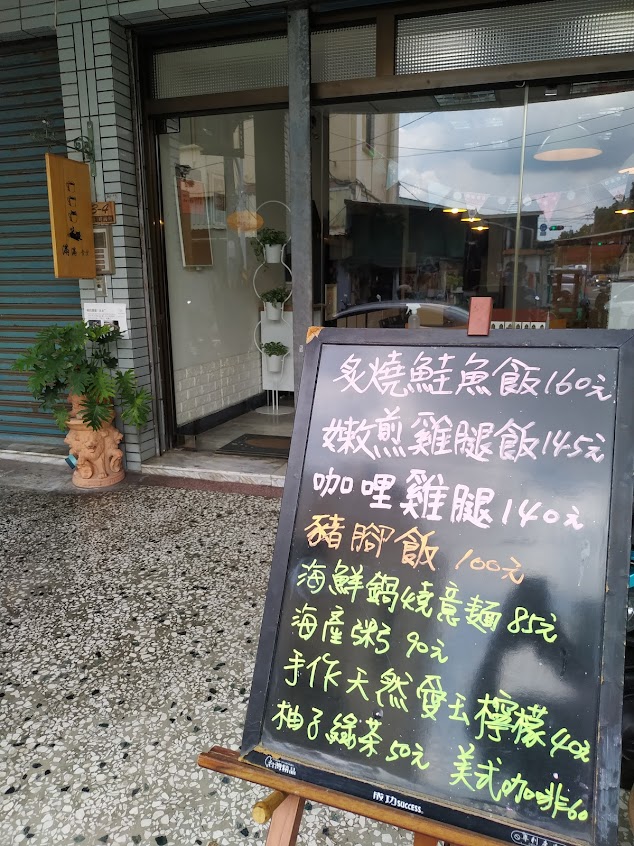 炙燒鮭魚飯160元
嫩煎雞腿飯145元
咖哩雞腿140元
豬腳飯 100元
海鮮鍋燒意麵85元
海產粥 90元
手作天然愛玉檸檬40元
柚子綠茶50元 美式咖啡60
成功success.